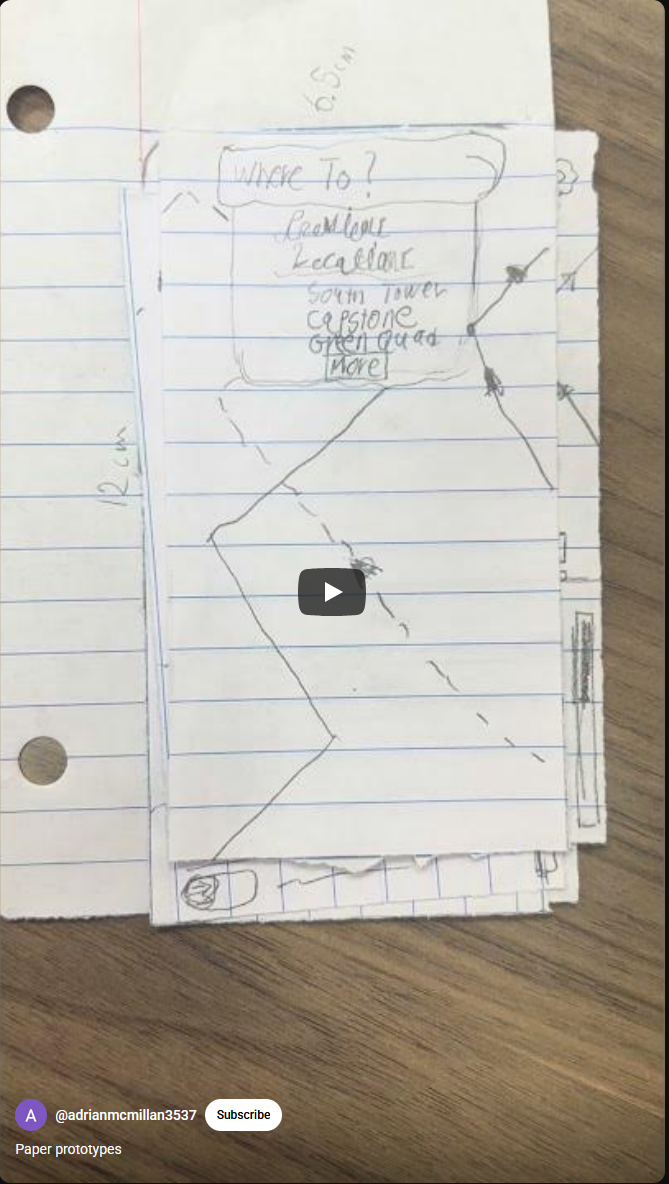 6.5cm
Where To?
Locations
South Tower
Capstone
Green Quad
More
12 cm
A
@adrianmcmillan3537
Subscribe
Paper prototypes